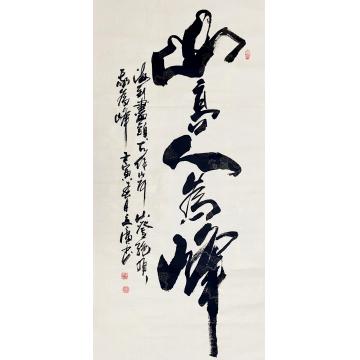 山高人為峰
海到盡頭天作岸山登絕頂
我為峰壬寅